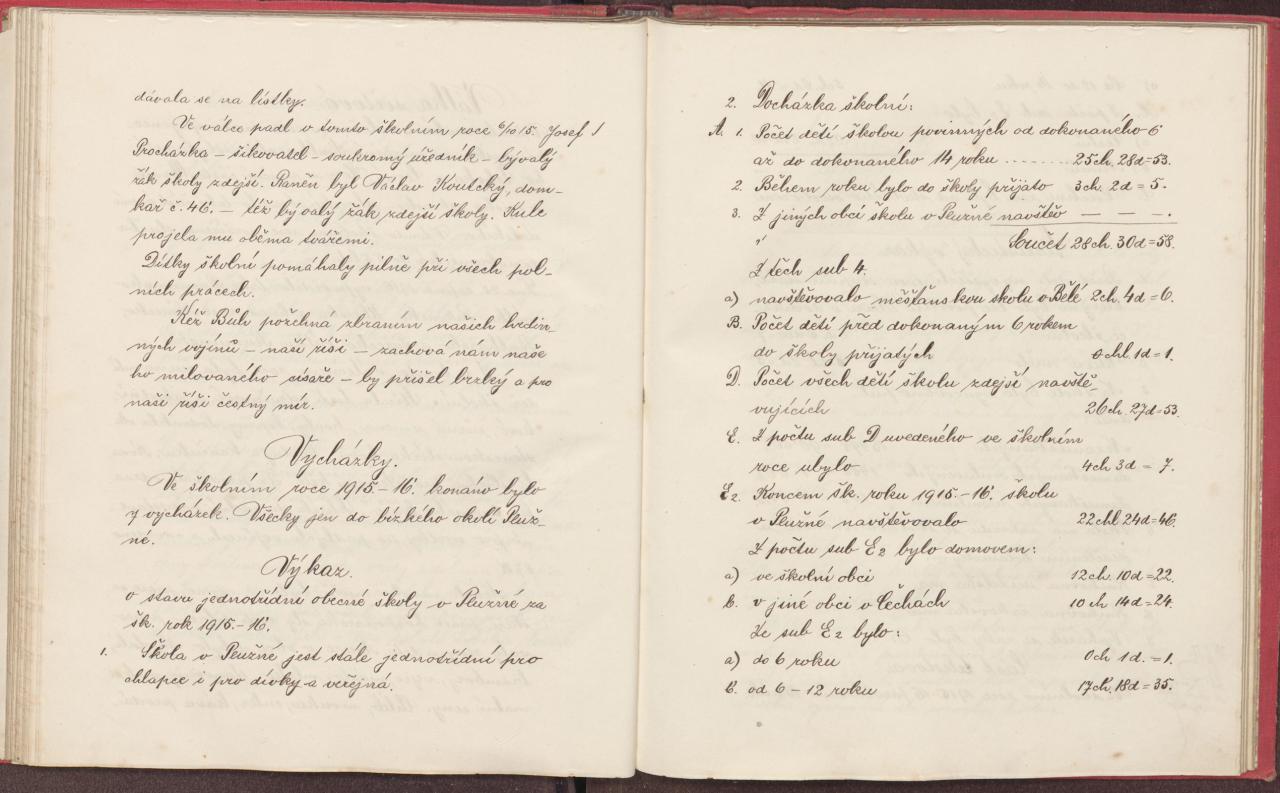 dávala se na lístky.
Ve válce padl v tomto školním roce 6/10 15. Josef
Procházka – šikovatel – soukromý úředník – bývalý
žák školy zdejší. Raněn byl Václav Koutcký, dom-
kař č. 46. – též bývalý žák zdejší školy. Kule
projela mu oběma tvářemi.
Dítky školní pomáhaly pilně při všech pol-
ních prácech.
Kéž Bůh požehná zbraním našich hrdin-
ných vojínů – naší říši – zachová nám naše
ho milovaného císaře – by přišel brzký a pro
naši říši čestný mír.
Vycházky.
Ve školním roce 1915.–16. konáno bylo
7 vycházek. Všecky jen do bízkého okolí Plužné.
né.
Výkaz.
o stavu jednotřídní obecné školy v Plužné za
šk. rok 1915.–16.
1. Škola v Plužné jest stále jednotřídní pro
chlapce i pro dívky a veřejná.
2. Docházka školní:
A. 1. Počet dětí školou povinných od dokonaného 6
až do dokonaného 14 roku ........ 25ch. 28d=53.
2. Během roku bylo do školy přijato 3ch. 2d = 5.
3. Z jiných obcí školu v Plužné navštěv — — —.
Součet 28ch. 30d=58.
Z těch sub 4.
a) navštěvovalo měšťanskou školu v Bělé 2ch. 4d=6.
B. Počet dětí před dokonaným 6 rokem
do školy přijatých 0chl. 1d=1.
D. Počet všech dětí školu zdejší navště-
vujících 26ch. 27d=53.
E. Z počtu sub D uvedeného ve školním
roce ubylo 4ch 3d = 7.
E2. Koncem šk. roku 1915.–16. školu
v Plužné navštěvovalo 22chl 24d=46.
Z počtu sub E2 bylo domovem:
a) ve školní obci 12ch. 10d=22.
b. v jiné obci v Čechách 10ch 14d=24.
Ze sub E2 bylo:
a) do 6 roku 0ch 1d.=1.
b. od 6–12 roku 17ch. 18d=35.